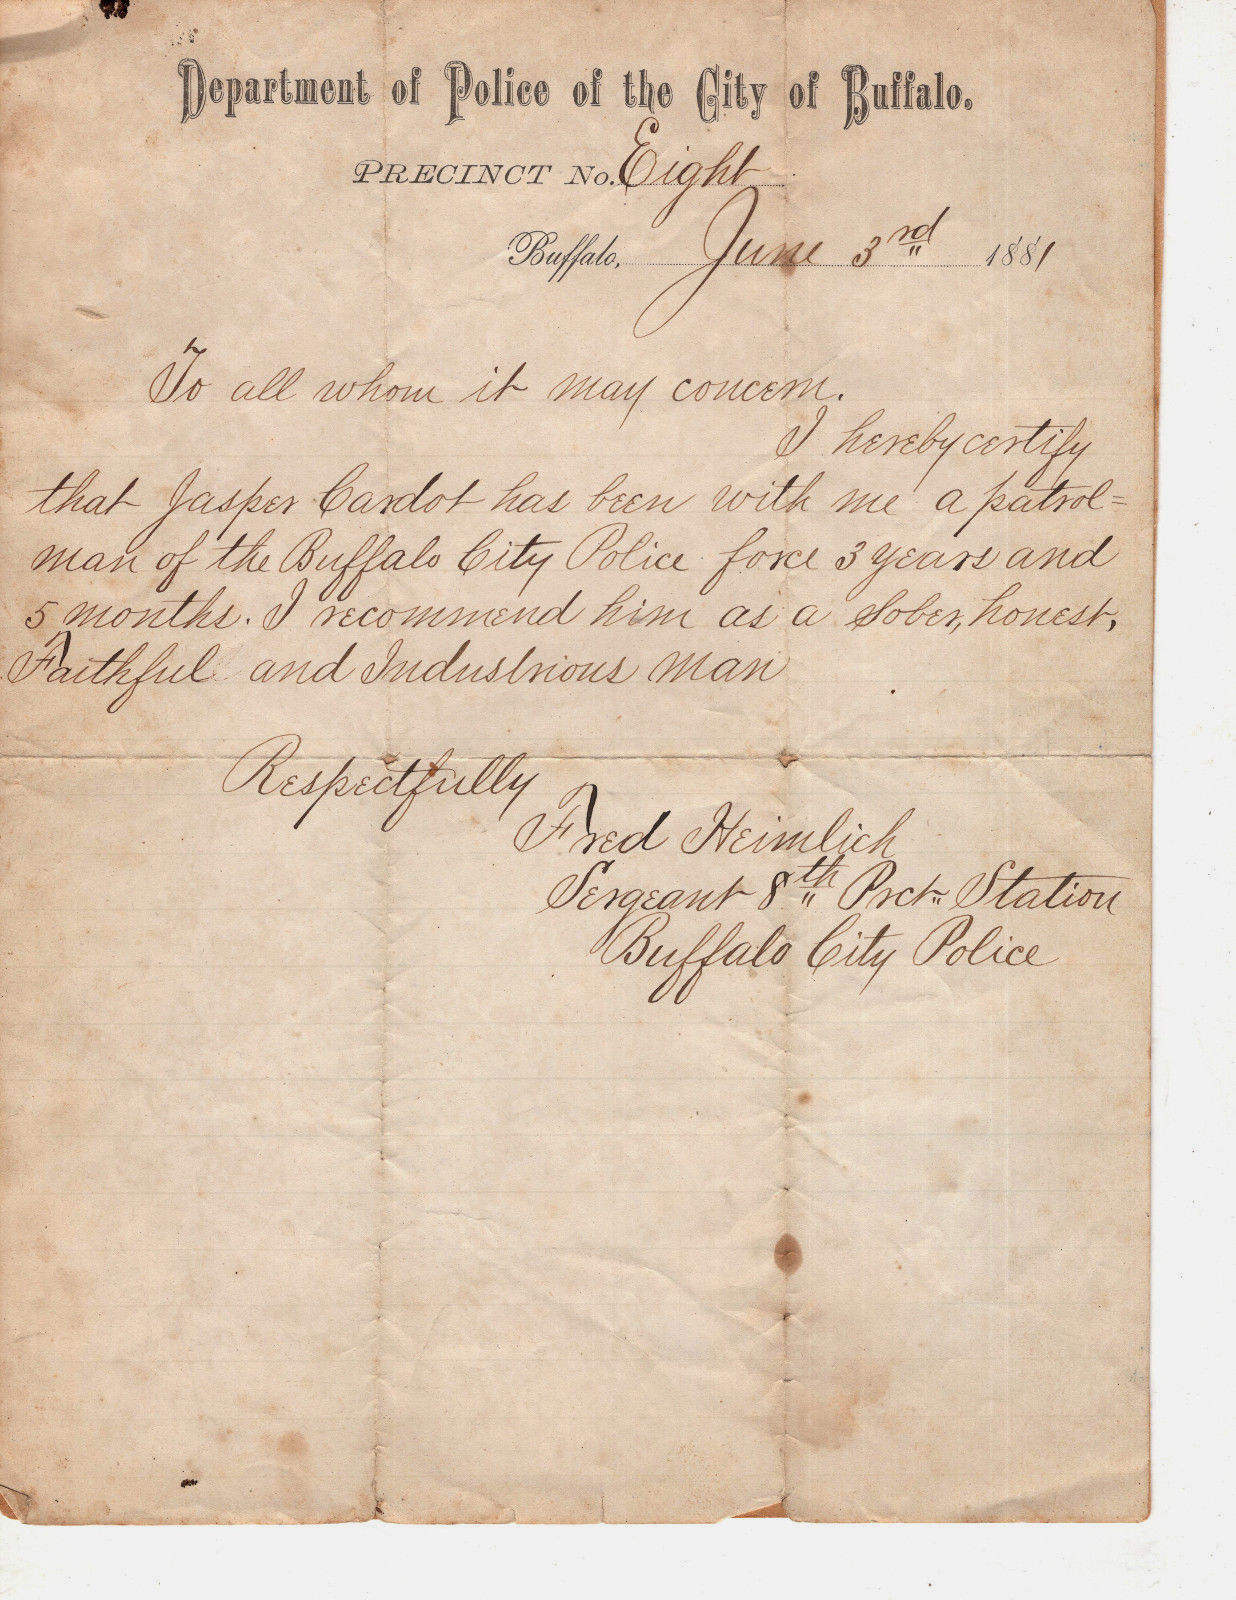 Department of Police of the City of Buffalo.
PRECINCT No. Eight
Buffalo, June 3rd 1881
To all whom it may concern.
I hereby certify
that Jasper Cardot has been with me a patrol=
man of the Buffalo City Police force 3 years and
5 months. I recommend him as a Sober, honest,
Faithful and Industrious man
Respectfully
Fred Heimlich
Sergeant 8th Prct. Station
Buffalo City Police